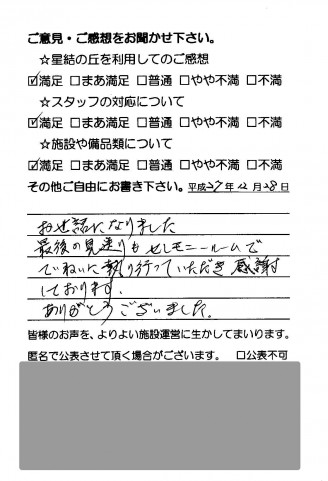 ご意見・ご感想をお聞かせ下さい。
☆星結の丘を利用してのご感想
☑満足 □まあ満足 □普通 □やや不満 □不満
☆スタッフの対応について
☑満足 □まあ満足 □普通 □やや不満 □不満
☆施設や備品類について
☑満足 □まあ満足 □普通 □やや不満 □不満
その他ご自由にお書き下さい。平成27年12月28日
お世話になりました
最後の見送りもセレモニールームで
ていねいに執り行っていただき感謝
しております。
ありがとうございました。
皆様のお声を、よりよい施設運営に生かしてまいります。
匿名で公表させて頂く場合がございます。 □公表不可